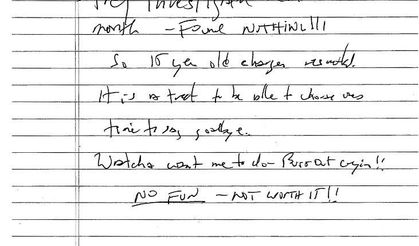 investigat
month – Found NOTHING!!!
So 15 year old charges resulted.
It is a treat to be able to choose ones
time to say goodbye.
Watcha want me to do – Burst out cryin!!
NO FUN – NOT WORTH IT!!